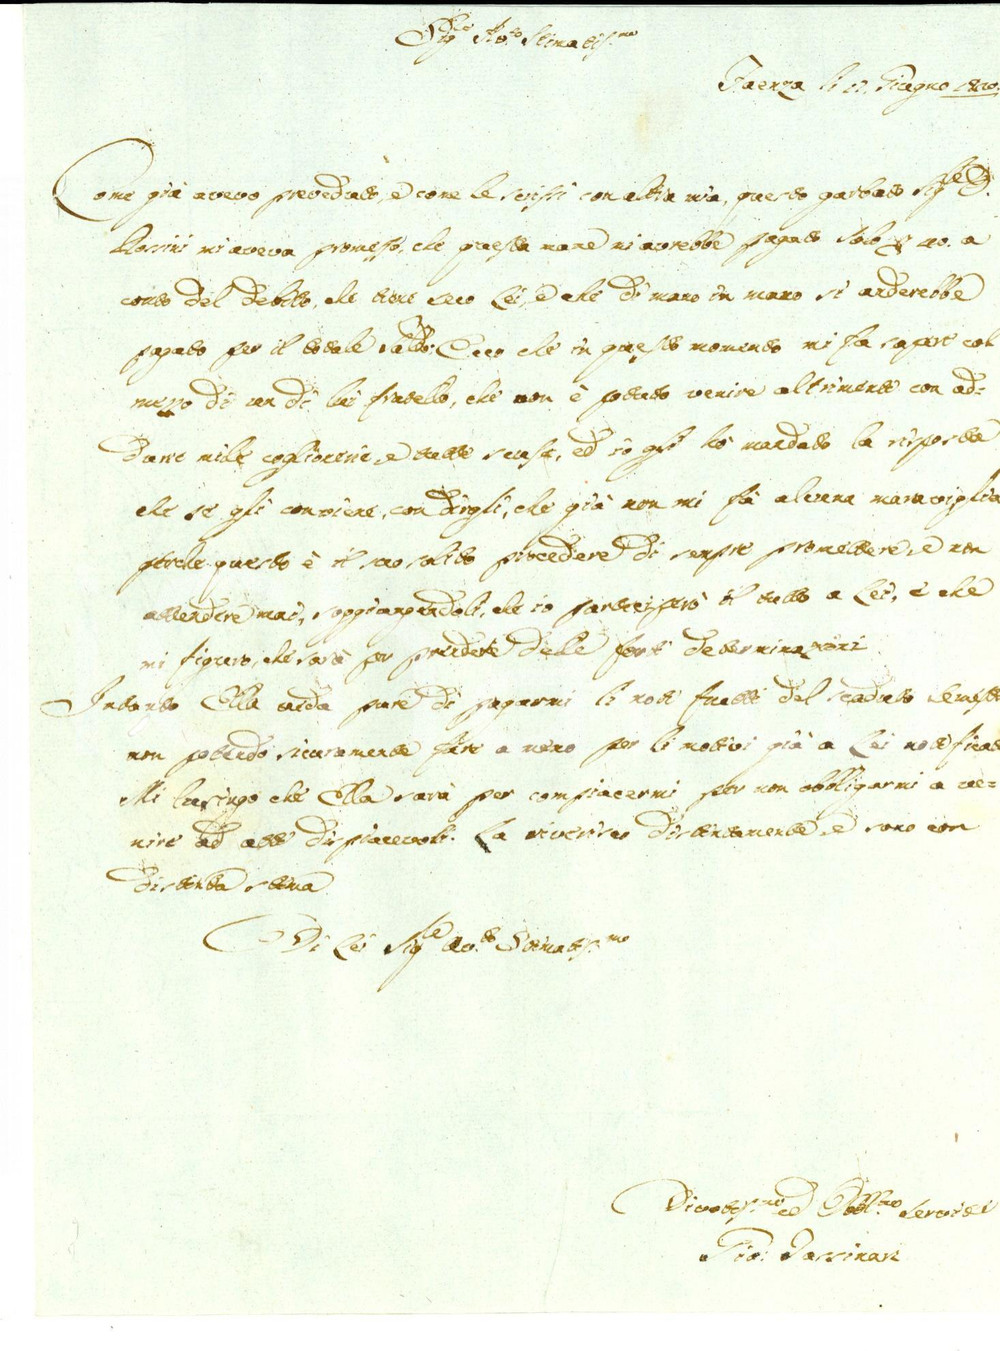 Sig.re A.to Stimatis.mo
Faenza li 17. Giugno 1820.
Come già avevo preveduto, e come le scrissi con altra mia, questo garbato Sig.re D.
Rossini mi aveva promesso, che questa mane mi avrebbe pagato solo 40. a
conto del debito, che tiene seco Lei, e che di mano in mano si anderebbe
pagato per il totale saldo: Ecco che in questo momento mi fa sapere col
mezzo di un di lui fratello, che non è potuto venire altrimenti con ad-
durre mille coglionerie, e tutte scuse, ed io gli hò mandato la risposta
che se gli conviene, con dirgli, che già non mi fà alcuna maraviglia
perche questo è il suo solito procedere di sempre promettere, e non
attendere mai, soggiungendoli, che io parteciperò il tutto a Lei, e che
mi figuro, che sarà per prendere delle forti determinazioni
Intanto Ella veda pure di pagarmi li noti frutti del scaduto Semestre
non potendo sicuramente fare a meno per li motivi già a Lei notificati
Mi lusingo che Ella sarà per compiacermi per non obbligarmi a ve-
nire ad atti dispiacevoli. La riverisco distintamente, e sono con
distinta stima
Di Lei Sig.re A.to Stimatis.mo
Divotis.mo ed Obbl.mo Servitor
Gio: Tassinari